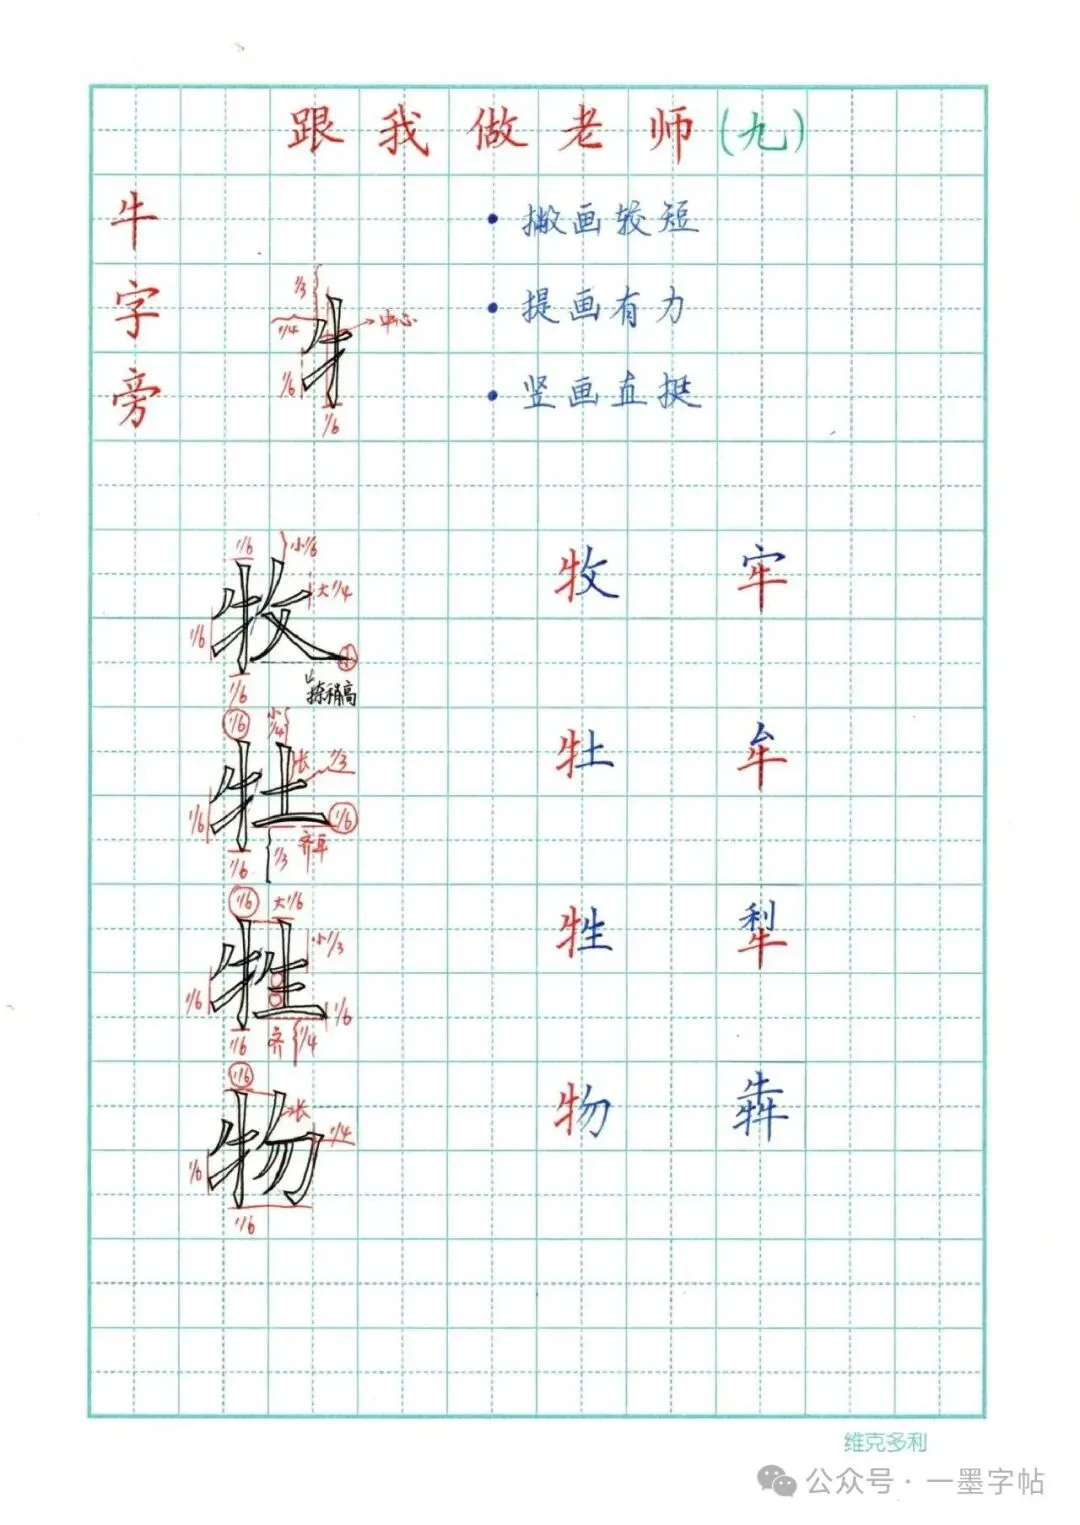 跟我做老师(九)
牛字旁
• 撇画较短
• 提画有力
• 竖画直挺
1/3
1/4
中心
1/6
1/6
1/6 小1/6
牧 大1/4
1/6
1/6
捺稍高
牧 牢
1/6 小1/4
牡 长 1/3
1/6 1/6
齐平
1/6 1/3
牡 牟
1/6 大1/6
牲 小1/3
1/6 1/6
1/6 齐 1/4
牲 犁
1/6
物 长
1/4
1/6
1/6
物 犇
维克多利
公众号·一墨字帖